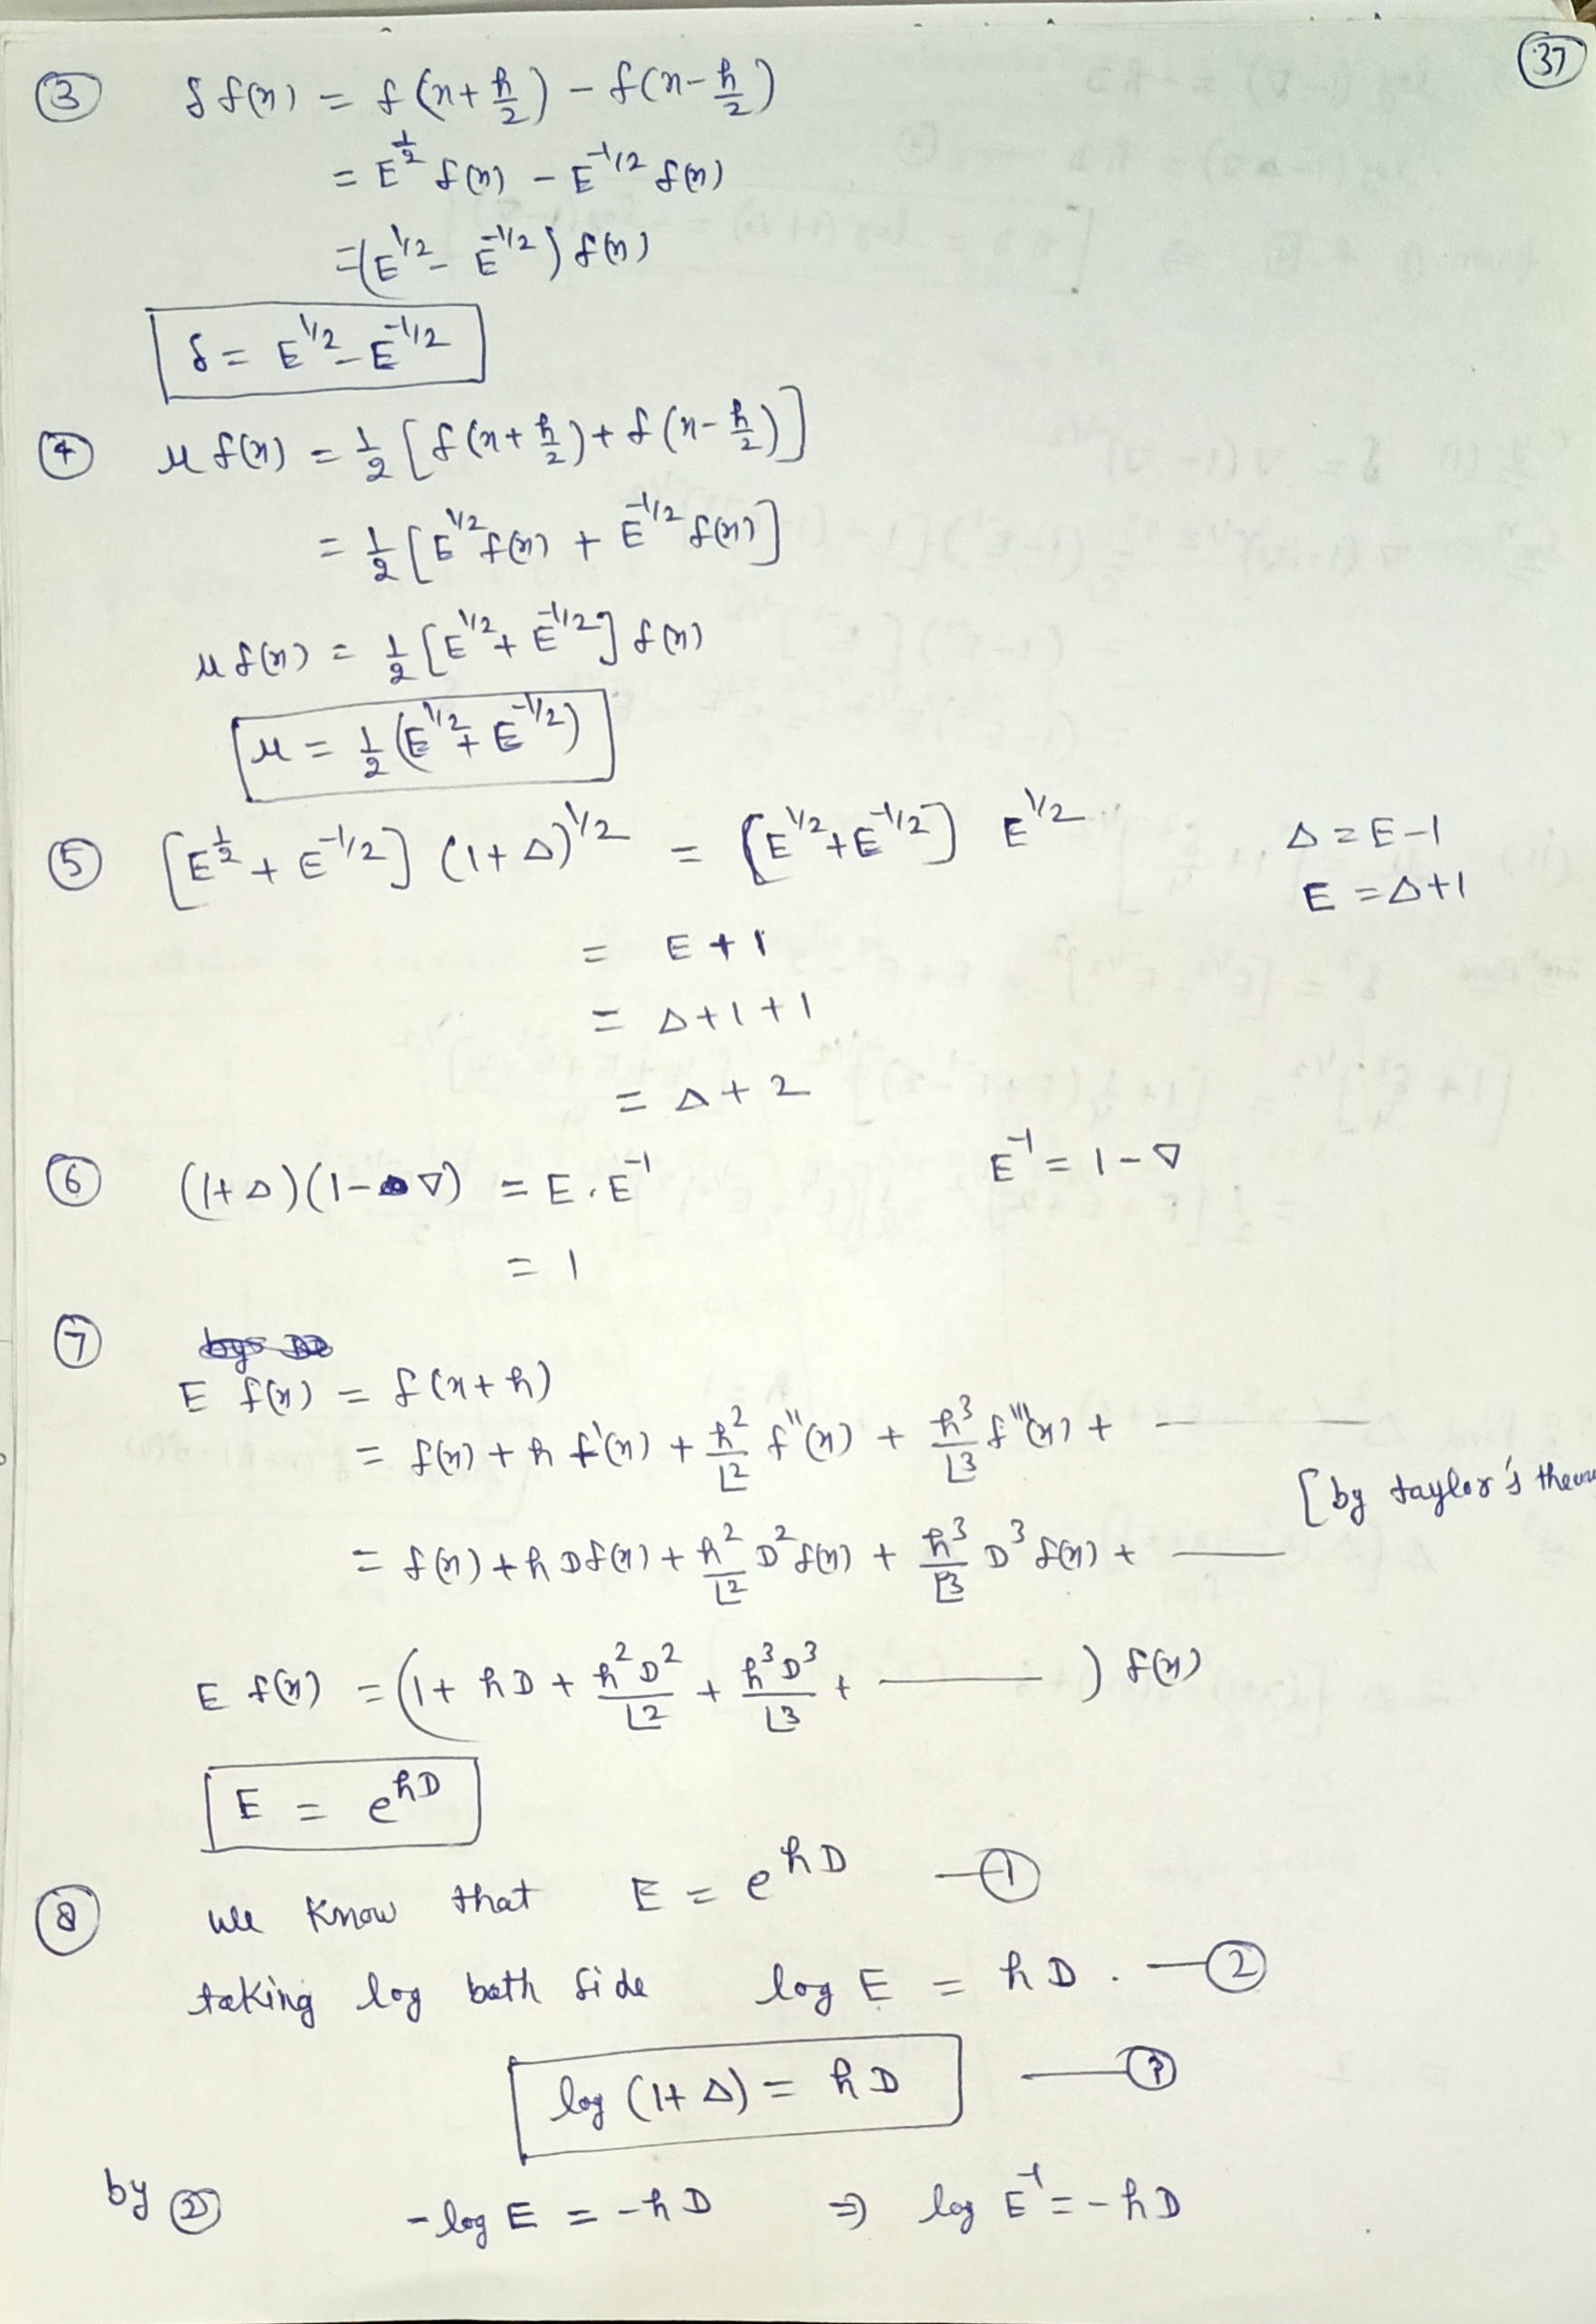 37
③ δ f(x) = f(x + h/2) − f(x − h/2)
= E^{1/2} f(x) − E^{-1/2} f(x)
= (E^{1/2} − E^{-1/2}) f(x)
δ = E^{1/2} − E^{-1/2}
④ μ f(x) = 1/2 [f(x + h/2) + f(x − h/2)]
= 1/2 [E^{1/2} f(x) + E^{-1/2} f(x)]
μ f(x) = 1/2 [E^{1/2} + E^{-1/2}] f(x)
μ = 1/2 (E^{1/2} + E^{-1/2})
⑤ [E^{1/2} + E^{-1/2}] (1 + Δ)^{1/2} = [E^{1/2} + E^{-1/2}] E^{1/2} Δ = E − 1
E = Δ + 1
= E + 1
= Δ + 1 + 1
= Δ + 2
⑥ (1 + Δ)(1 − ∇) = E . E^{-1} E^{-1} = 1 − ∇
= 1
⑦
E f(x) = f(x + h)
= f(x) + h f'(x) + h²/⌊2 f''(x) + h³/⌊3 f'''(x) + ———
[by taylor's
= f(x) + h D f(x) + h²/⌊2 D² f(x) + h³/⌊3 D³ f(x) + ———
E f(x) = (1 + hD + h²D²/⌊2 + h³D³/⌊3 + ———) f(x)
E = e^{hD}
⑧ we know that E = e^{hD} —①
taking log both side log E = hD . —②
log (1 + Δ) = hD —③
by ② − log E = − hD ⇒ log E^{-1} = − hD